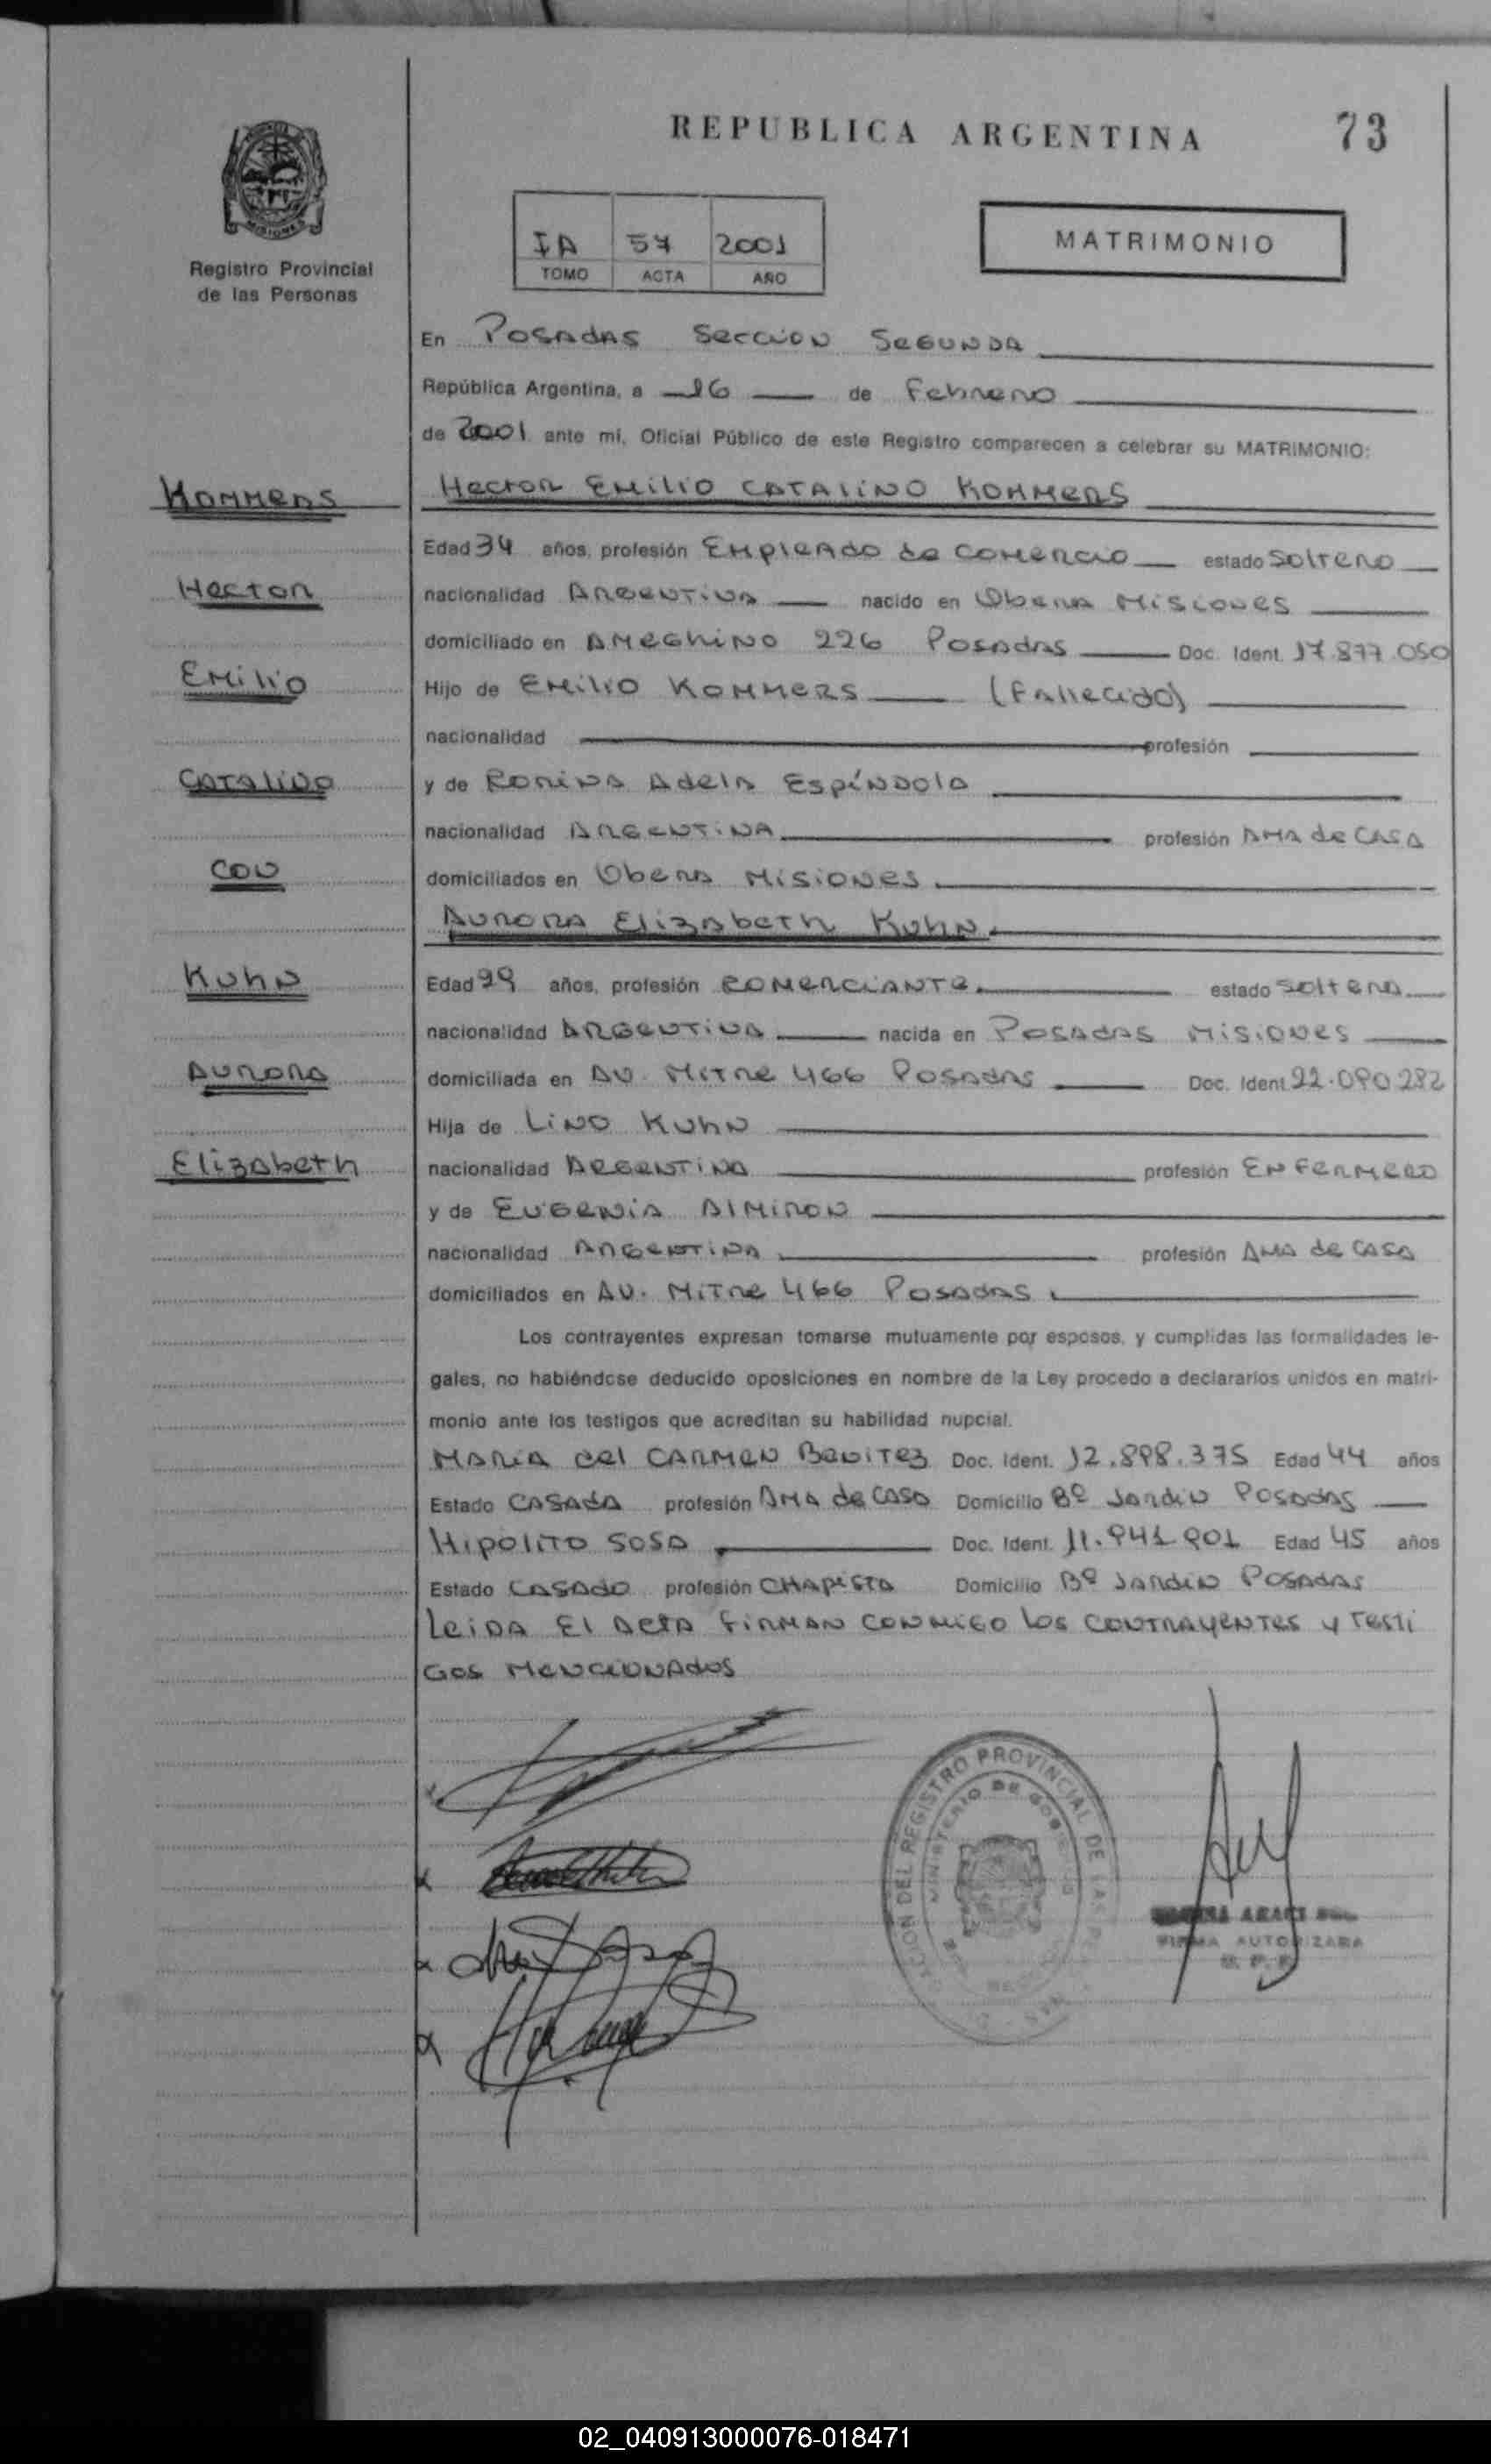 REPUBLICA ARGENTINA
73
MISIONES
Registro Provincial
de las Personas
IA 57 2001
TOMO ACTA AÑO
MATRIMONIO
En Posadas Seccion Segunda
República Argentina, a 16 de Febrero
de 2001 ante mí, Oficial Público de este Registro comparecen a celebrar su MATRIMONIO:
Kommers
Hector Emilio Catalino Kommers
Edad 34 años, profesión Empleado de Comercio estado Soltero
Hector
nacionalidad Argentina nacido en Obera Misiones
domiciliado en Ameghino 226 Posadas Doc. Ident. 17.877.050
Emilio
Hijo de Emilio Kommers (Fallecido)
nacionalidad profesión
Catalino
y de Romina Adela Espíndola
nacionalidad Argentina profesión Ama de Casa
con
domiciliados en Obera Misiones.
Aurora Elizabeth Kuhn
Kuhn
Edad 29 años, profesión Comerciante. estado Soltera
nacionalidad Argentina nacida en Posadas Misiones
Aurora
domiciliada en Av. Mitre 466 Posadas Doc. Ident 22.090.282
Hija de Lino Kuhn
Elizabeth
nacionalidad Argentina profesión Enfermero
y de Eugenia Almiron
nacionalidad Argentina profesión Ama de Casa
domiciliados en Av. Mitre 466 Posadas.
Los contrayentes expresan tomarse mutuamente por esposos, y cumplidas las formalidades le-
gales, no habiéndose deducido oposiciones en nombre de la Ley procedo a declararlos unidos en matri-
monio ante los testigos que acreditan su habilidad nupcial.
Maria del Carmen Benitez Doc. Ident. 12.898.375 Edad 44 años
Estado Casada profesión Ama de Casa Domicilio Bº Jardin Posadas
Hipolito Sosa Doc. Ident. 11.941.901 Edad 45 años
Estado Casado profesión Chapista Domicilio Bº Jardin Posadas
Leida el acta firman conmigo los contrayentes y testi
gos mencionados
REGISTRO PROVINCIAL DE LAS
MINISTERIO DE GOBIERNO
FIRMA AUTORIZADA
02_040913000076-018471